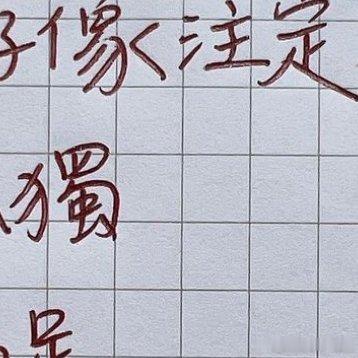 好像注定
獨